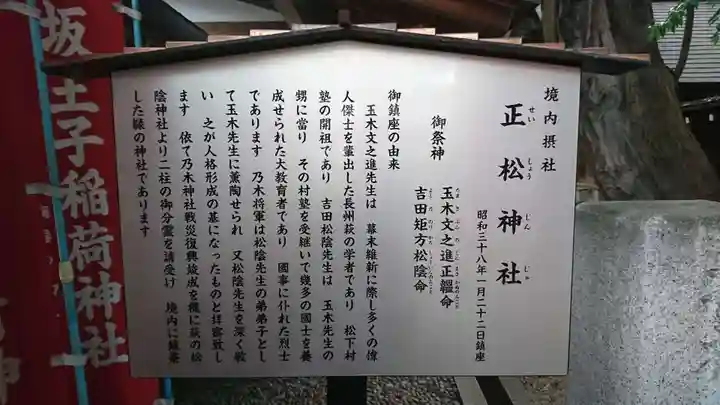 境内摂社
正松神社
せいしょうじんじゃ
昭和三十八年一月二十二日鎮座
御祭神
玉木文之進正韞命
吉田矩方松陰命
御鎮座の由来
玉木文之進先生は 幕末維新に際し多くの偉
人傑士を輩出した長州萩の学者であり 松下村
塾の開祖であり 吉田松陰先生は 玉木先生の
甥に当り その村塾を受継いで幾多の國士を養
成せられた大教育者であり 國事に仆れた烈士
であります 乃木将軍は松陰先生の弟弟子とし
て玉木先生に薫陶せられ 又松陰先生を深く敬
い 之が人格形成の基になったものと拝察致し
ます 依て乃木神社戦災復興竣成を機に萩の松
陰神社より二柱の御分霊を請受け 境内に鎮斎
した縁の神社であります
坂王子稲荷神社